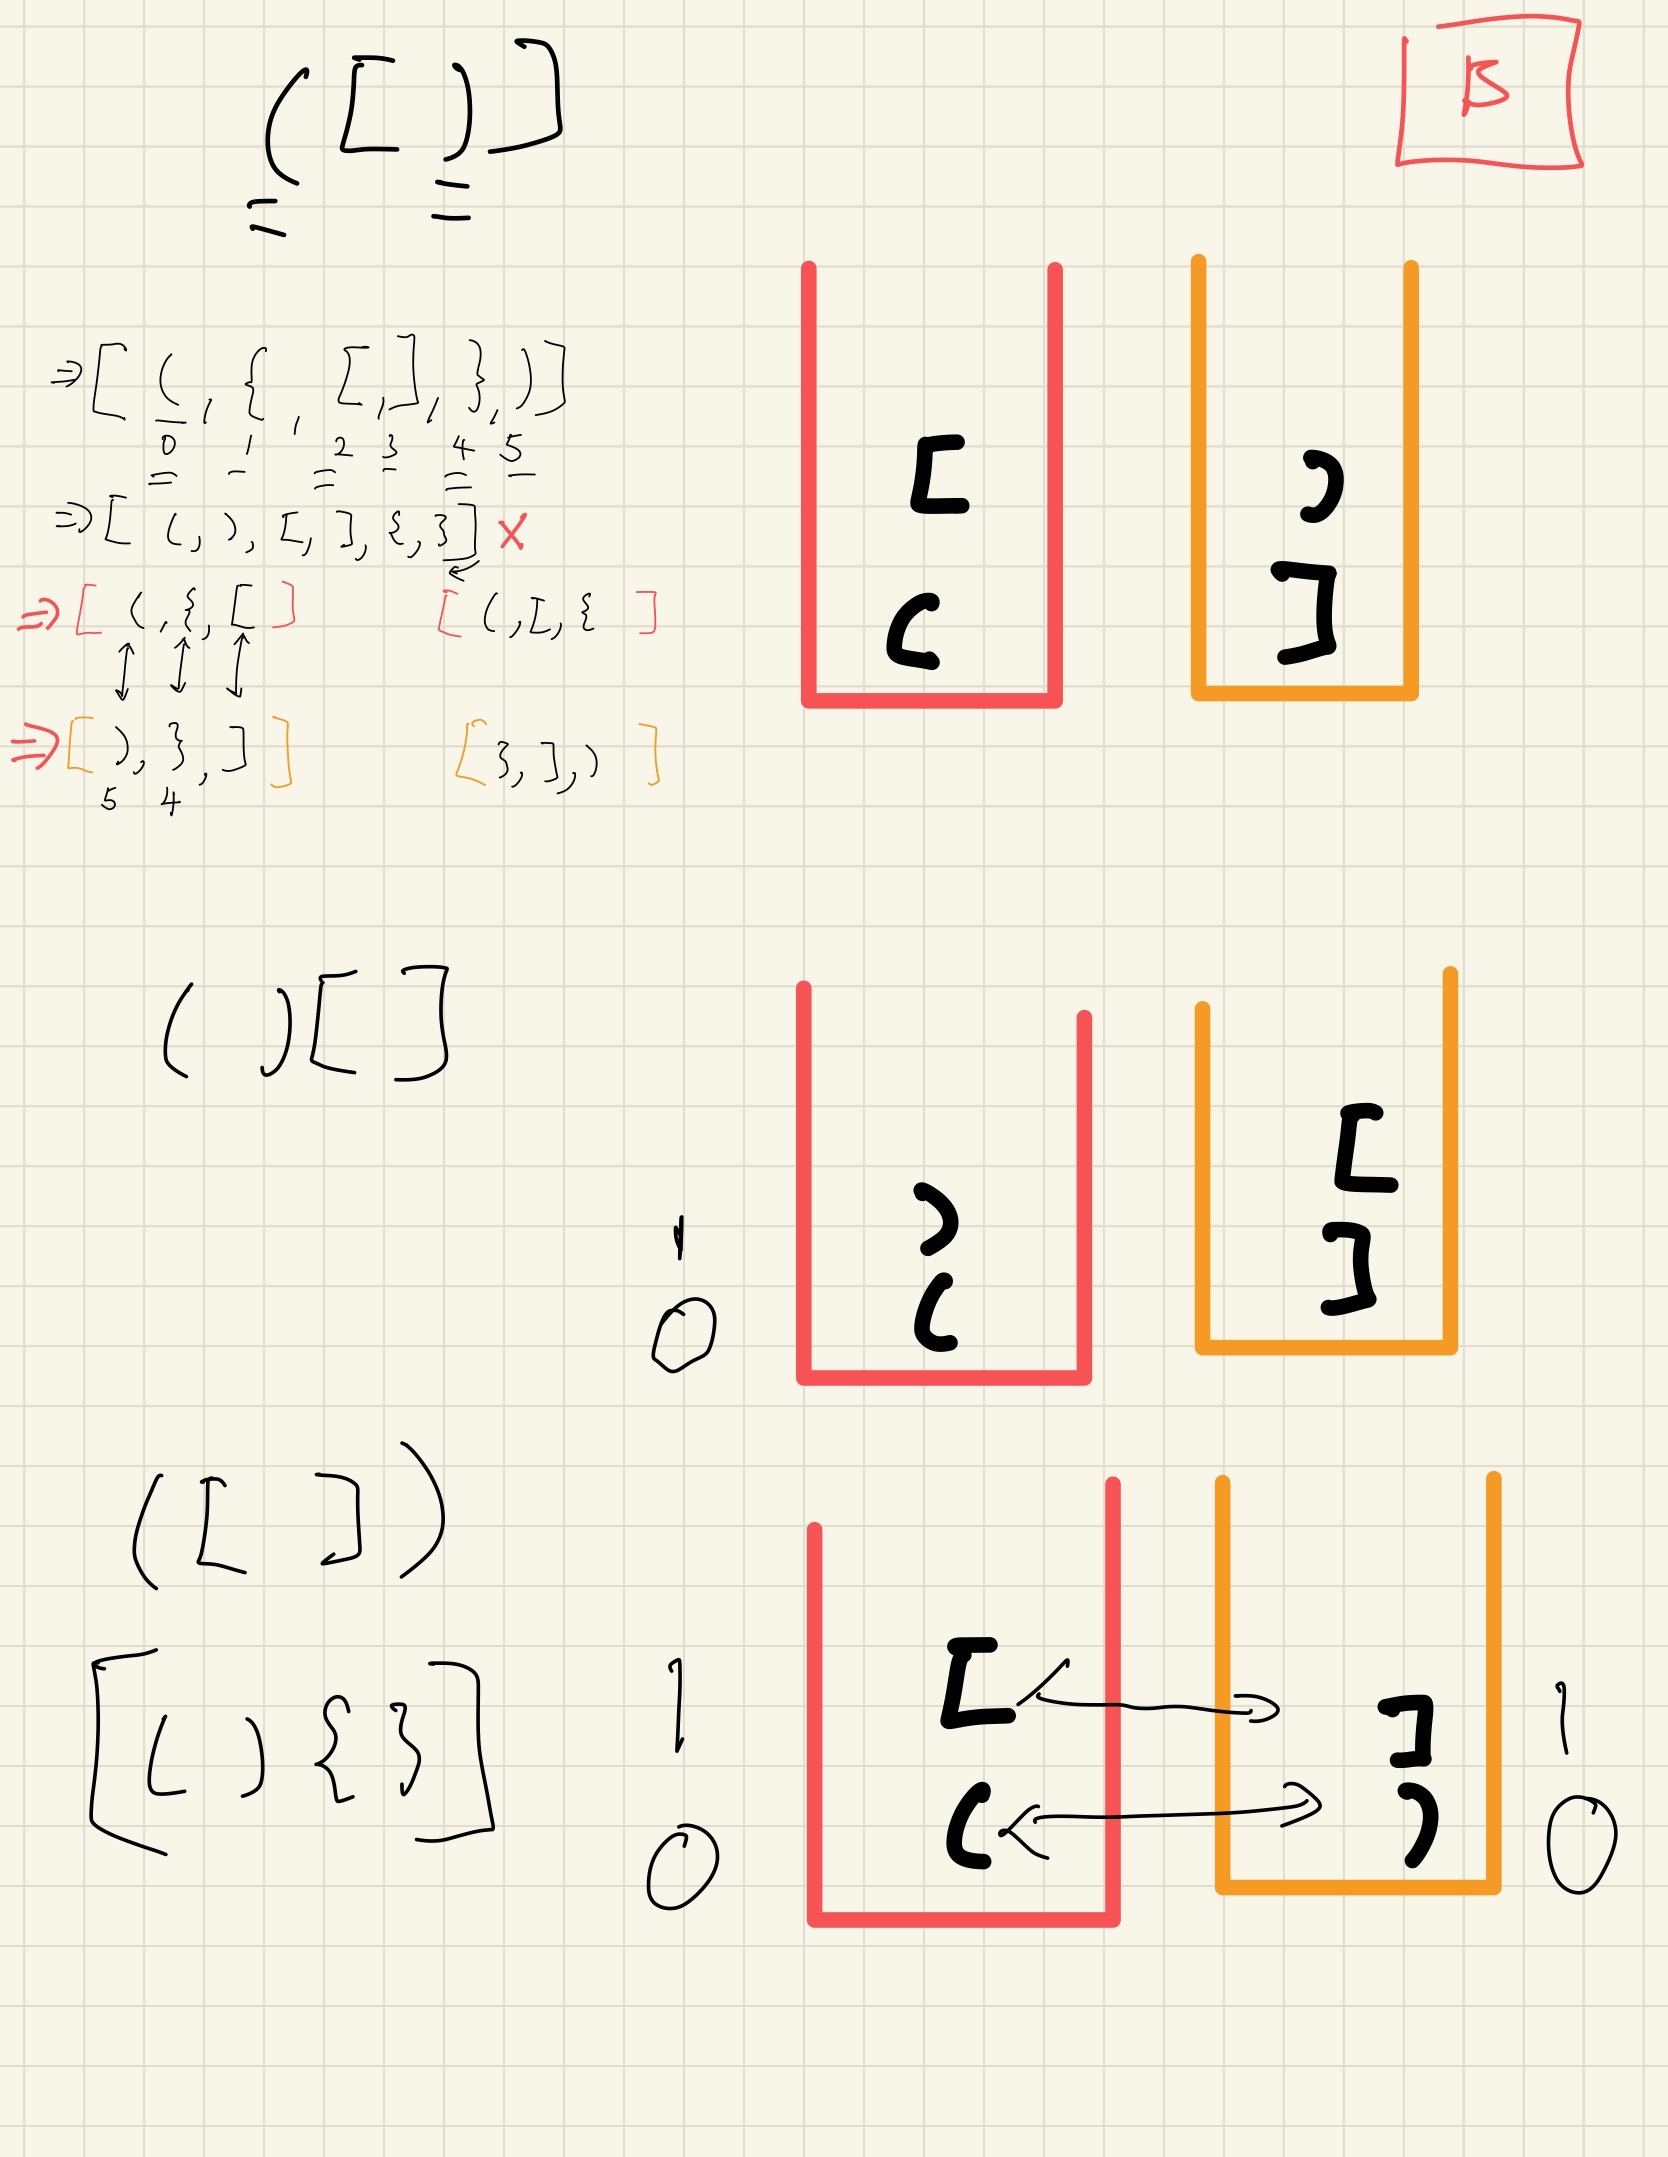 ( [ ) ]
B
⇒ [ ( , { , [ , ] , } , ) ]
0 1 2 3 4 5
⇒ [ ( , ) , [ , ] , { , } ] X
⇒ [ ( , { , [ ]
[ ( , [ , { ]
⇒ [ ) , } , ] ]
[ } , ] , ) ]
5 4
[ )
( ]
( ) [ ]
) [
( ]
1
0
( [ ] )
[ ( ) { } ]
1 [ ] 1
0 ( ) 0